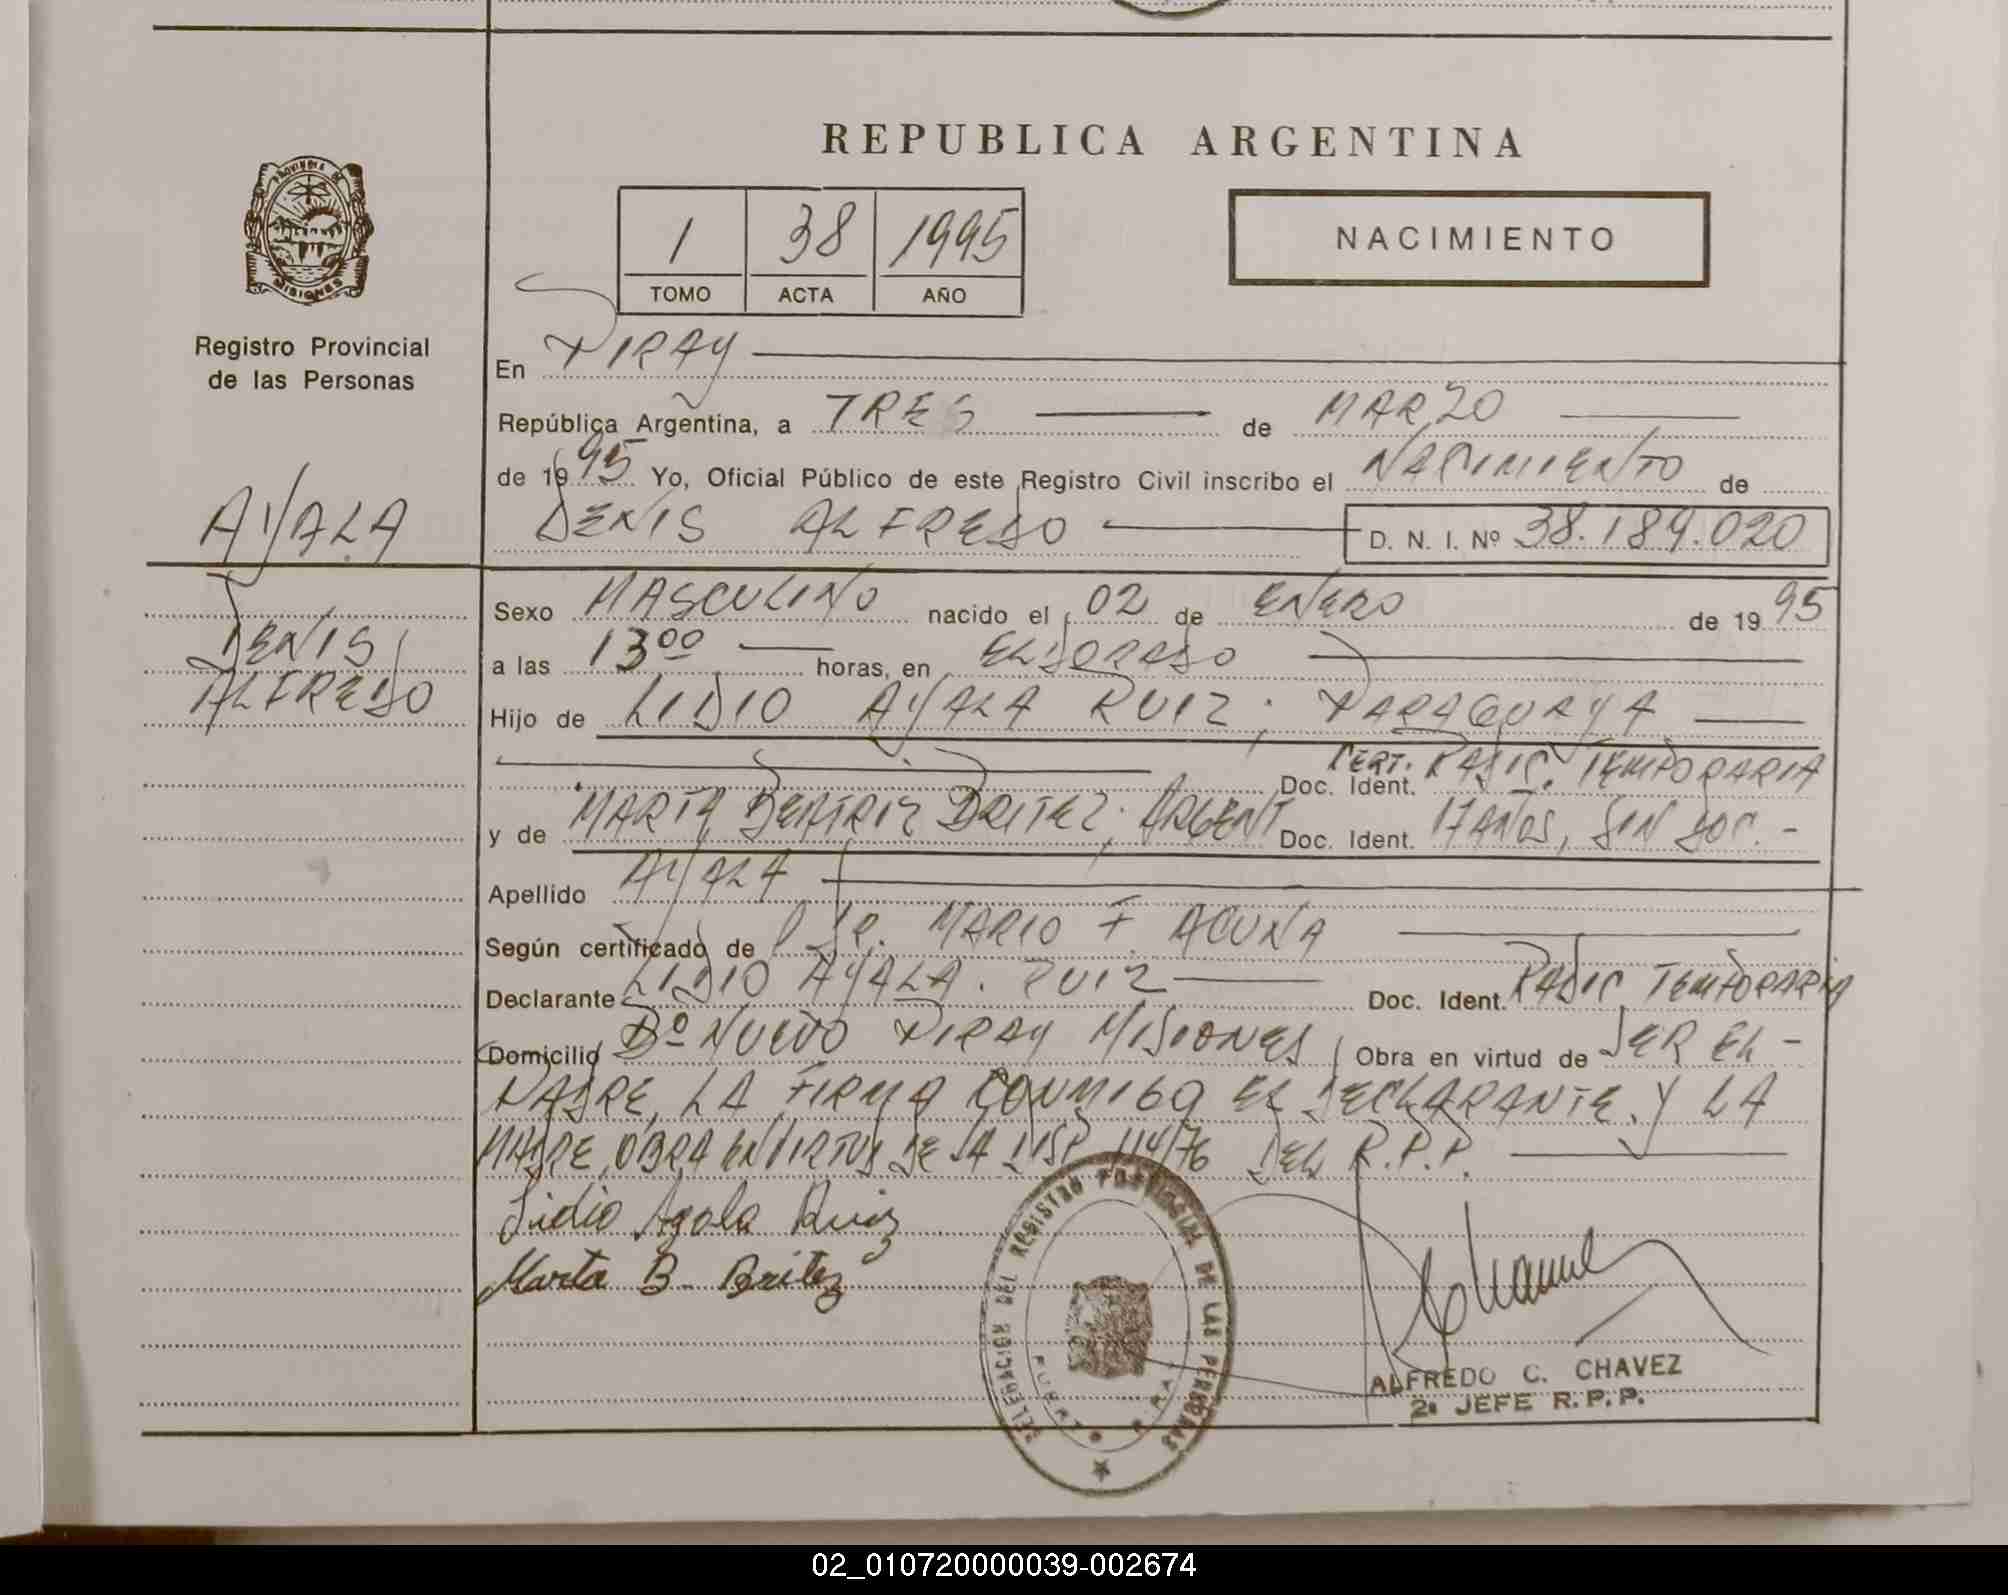 REPUBLICA ARGENTINA
PROVINCIA DE
MISIONES
Registro Provincial
de las Personas
1 38 1995
TOMO ACTA AÑO
NACIMIENTO
En PIRAY
República Argentina, a TRES de MARZO
de 1995 Yo, Oficial Público de este Registro Civil inscribo el NACIMIENTO de
DENIS ALFREDO D. N. I. Nº 38.189.020
AYALA
DENIS
ALFREDO
Sexo MASCULINO nacido el 02 de ENERO de 1995
a las 13 00 horas, en ELDORADO
Hijo de LIDIO AYALA RUIZ; PARAGUAYA
Doc. Ident. CERT. RADIC. TEMPORARIA
y de MARTA BEATRIZ BRITEZ; ARGENT Doc. Ident. 17 AÑOS, SIN DOC. -
Apellido AYALA
Según certificado de DR. MARIO F. ACUÑA
Declarante LIDIO AYALA RUIZ Doc. Ident. RADIC TEMPORARIA
Domicilio Bº NUEVO PIRAY MISIONES Obra en virtud de SER EL -
PADRE, LA FIRMA CONMIGO EL DECLARANTE, Y LA
MADRE, OBRA EN VIRTUD DE LA DISP 114/76 DEL R.P.P.
Lidio Ayala Ruiz
Marta B. Britez
DELEGACION DEL REGISTRO PROVINCIAL DE LAS PERSONAS
PUERTO PIRAY
ALFREDO C. CHAVEZ
2º JEFE R.P.P.
02_010720000039-002674